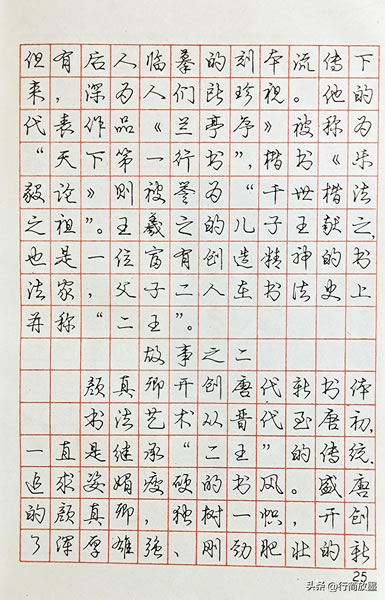 但有后人临摹的刻本流传下
来，深为人们所珍视。他的
代表作品《兰亭序》被称为
“天下第一行书”，楷书《乐
毅论》则被誉为“千世楷法
之祖”。王羲之的儿子王献之，
也是一位富有创造精神的书
法家，父子二人在书法史上
并称“二王”。
故事之二
颜真卿开创唐代新书体
书法艺术从晋代至唐初，
一直是继承“二王”的传统，
追求姿媚瘦硬的书风。盛唐
的颜真卿，独树一帜，开创
了浑厚雄强、刚劲肥壮的新
25
头条@行简放墨